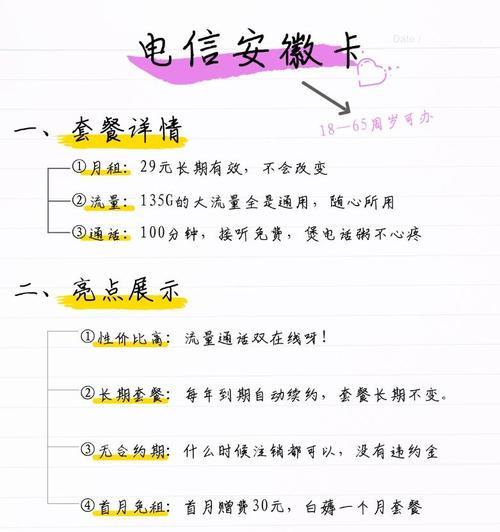 电信安徽卡
Date /
18—65周岁可办
一、套餐详情
①月租：29元长期有效，不会改变
②流量：135G的大流量全是通用，随心所用
③通话：100分钟，接听免费，煲电话粥不心疼
二、亮点展示
①性价比高：流量通话双在线呀！
②长期套餐：每年到期自动续约，套餐长期不变。
③无合约期：什么时候注销都可以，没有违约金
④首月免租：首月赠费30元，白薅一个月套餐